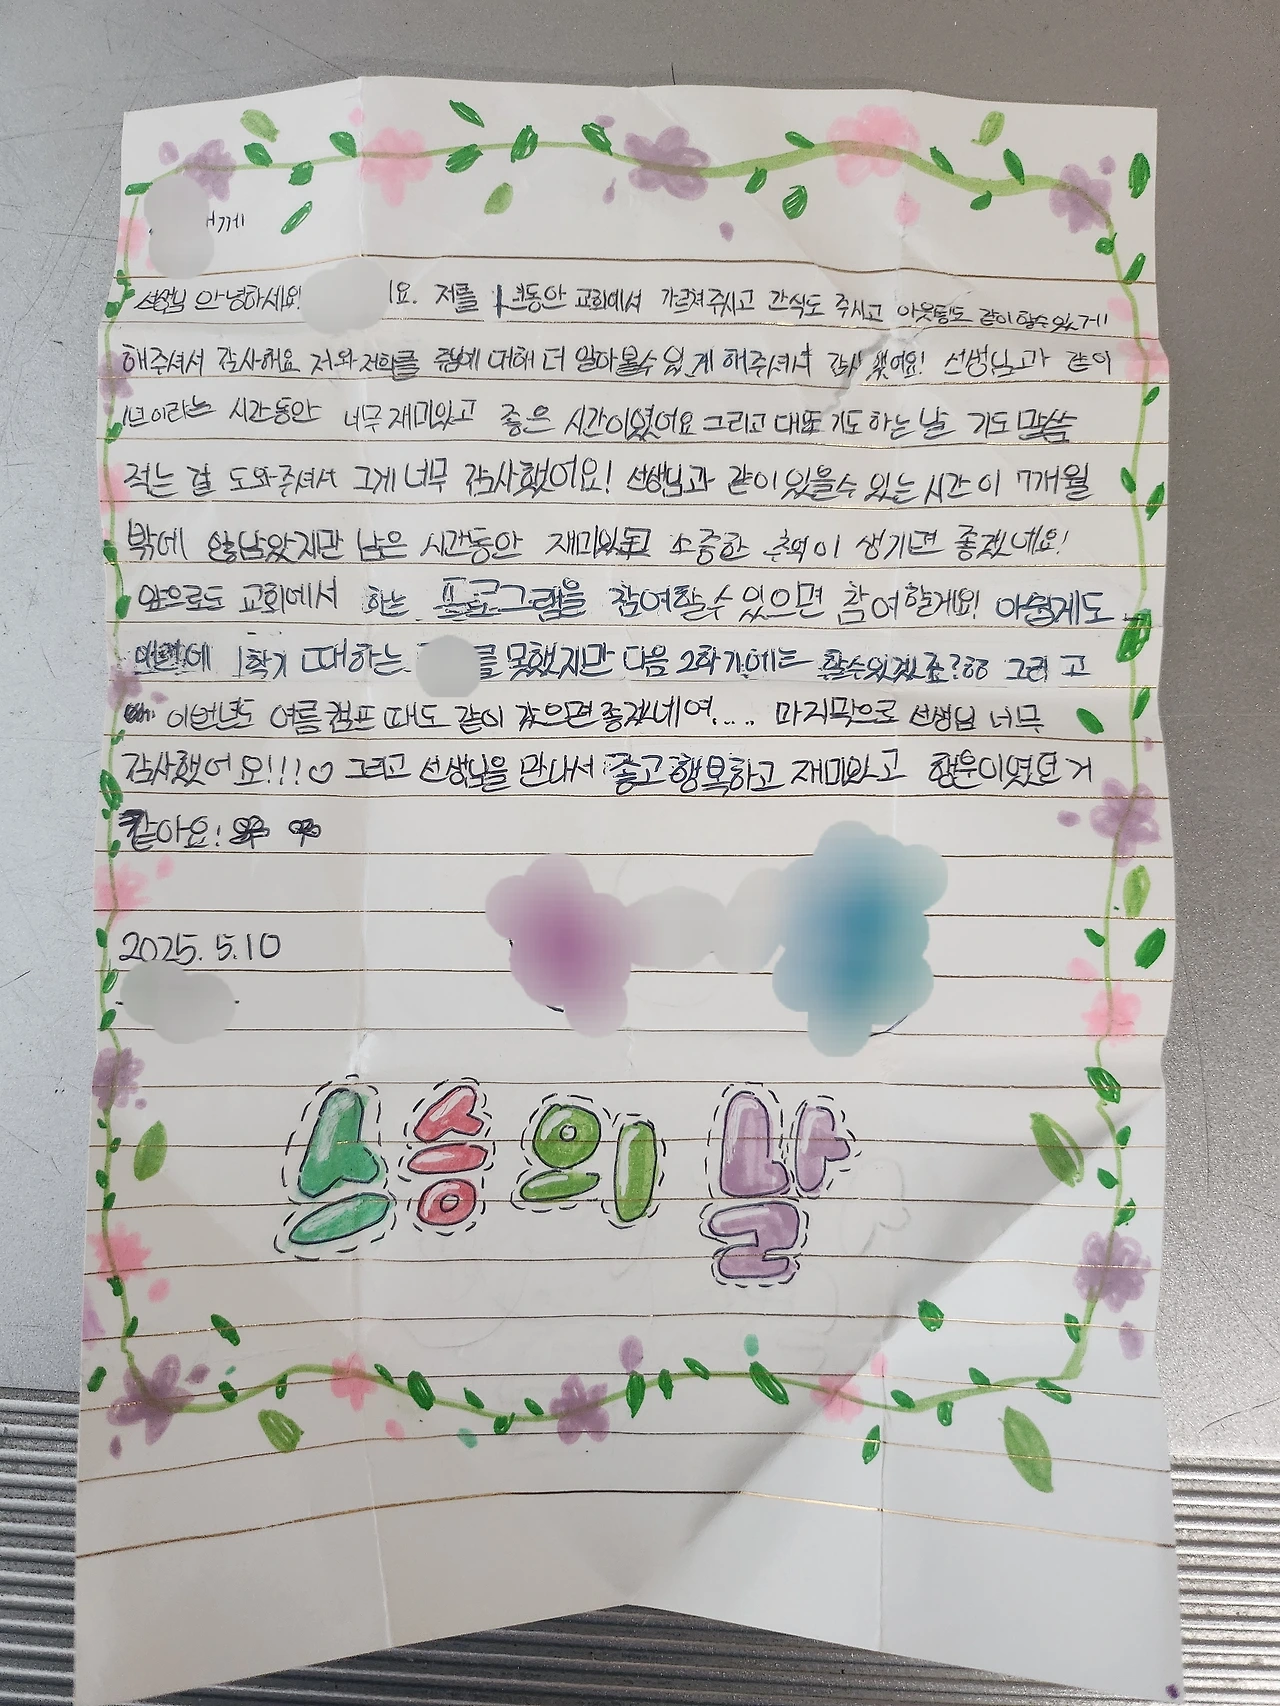 께
선생님 안녕하세요! 요. 저를 1년동안 교회에서 가르쳐주시고 간식도 주시고 아웃팅도 같이 할수있게
해주셔서 감사해요 저와 저희를 주님에 대해 더 알아볼수 있게 해주셔서 감사했어요! 선생님과 같이
1년이라는 시간동안 너무 재미있고 좋은 시간이였어요 그리고 대표 기도하는 날 기도 말씀
적는 걸 도와주셔서 그게 너무 감사했어요! 선생님과 같이 있을수 있는 시간이 7개월
밖에 않남았지만 남은 시간동안 재미있고 소중한 추억이 생기면 좋겠네요!
앞으로도 교회에서 하는 프로그램을 참여할수 있으면 참여할게요! 아쉽게도
1학기 때하는 를 못했지만 다음 2학기에는 할수있겠죠?ㅎㅎ 그리고
이번년도 여름캠프 때도 같이 갔으면좋겠네여.... 마지막으로 선생님 너무
감사했어요!!!♡ 그리고 선생님을 만나서 좋고 행복하고 재미있고 행운이였던 거
같아요!
2025. 5.10
스승의 날